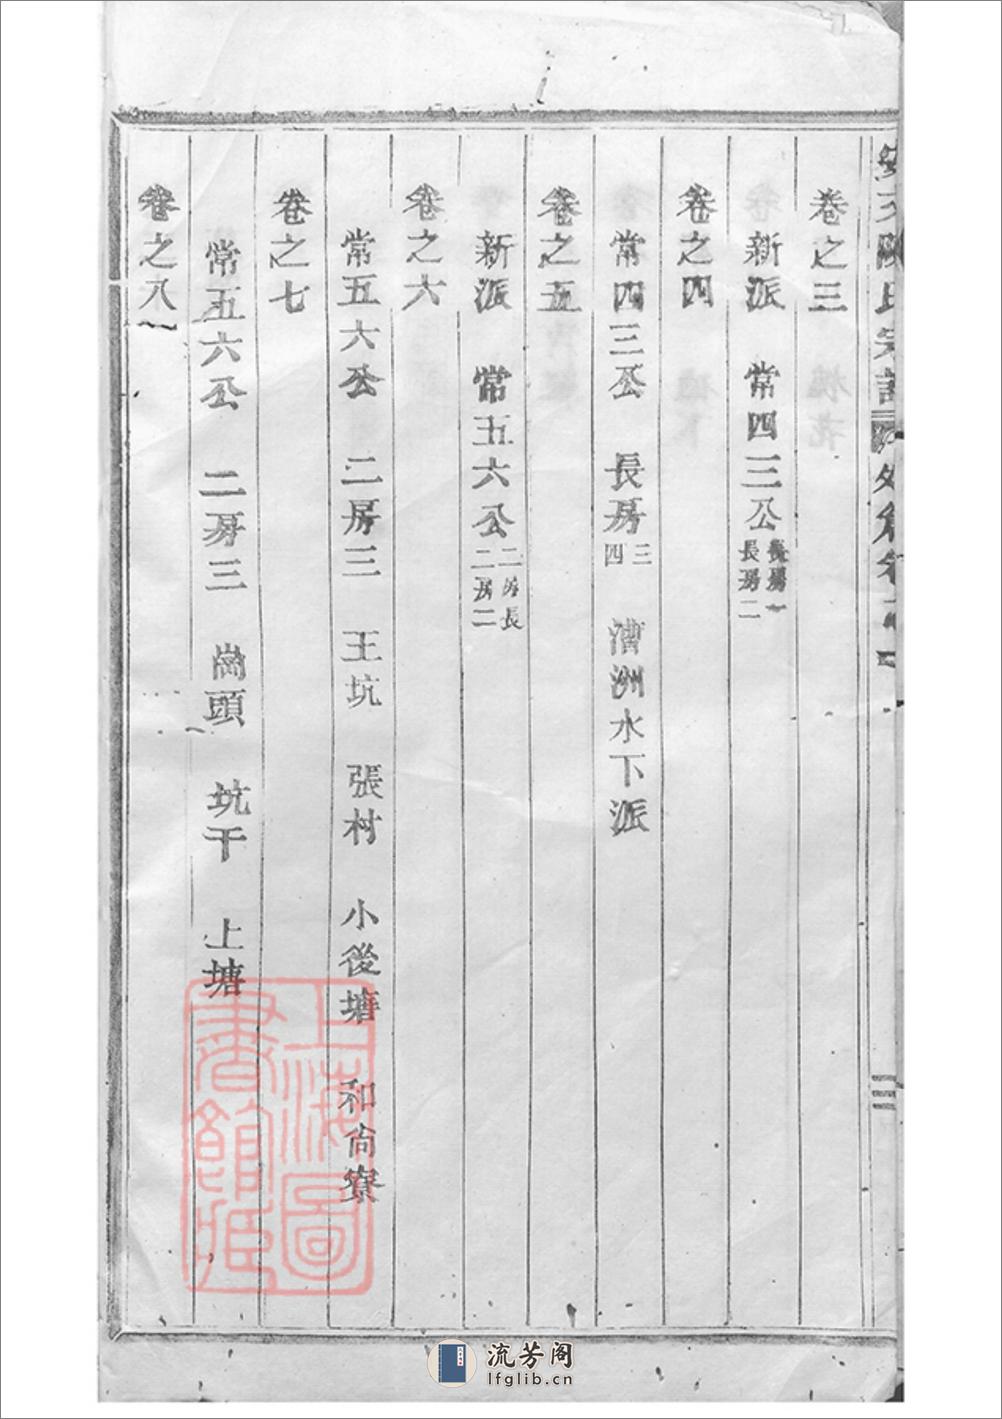 卷之三
新派　常四三公　長房一　長房二
卷之四
常四三公　長房三四　漕洲水下派
卷之五
新派　常五六公　二房長　二房二
卷之六
常五六公　二房三　王坑　張村　小後塘　和尙寮
卷之七
常五六公　二房三　崗頭　坑干　上塘
卷之八
陳氏宗譜
上海圖書館藏
流芳阁
lfglib.cn